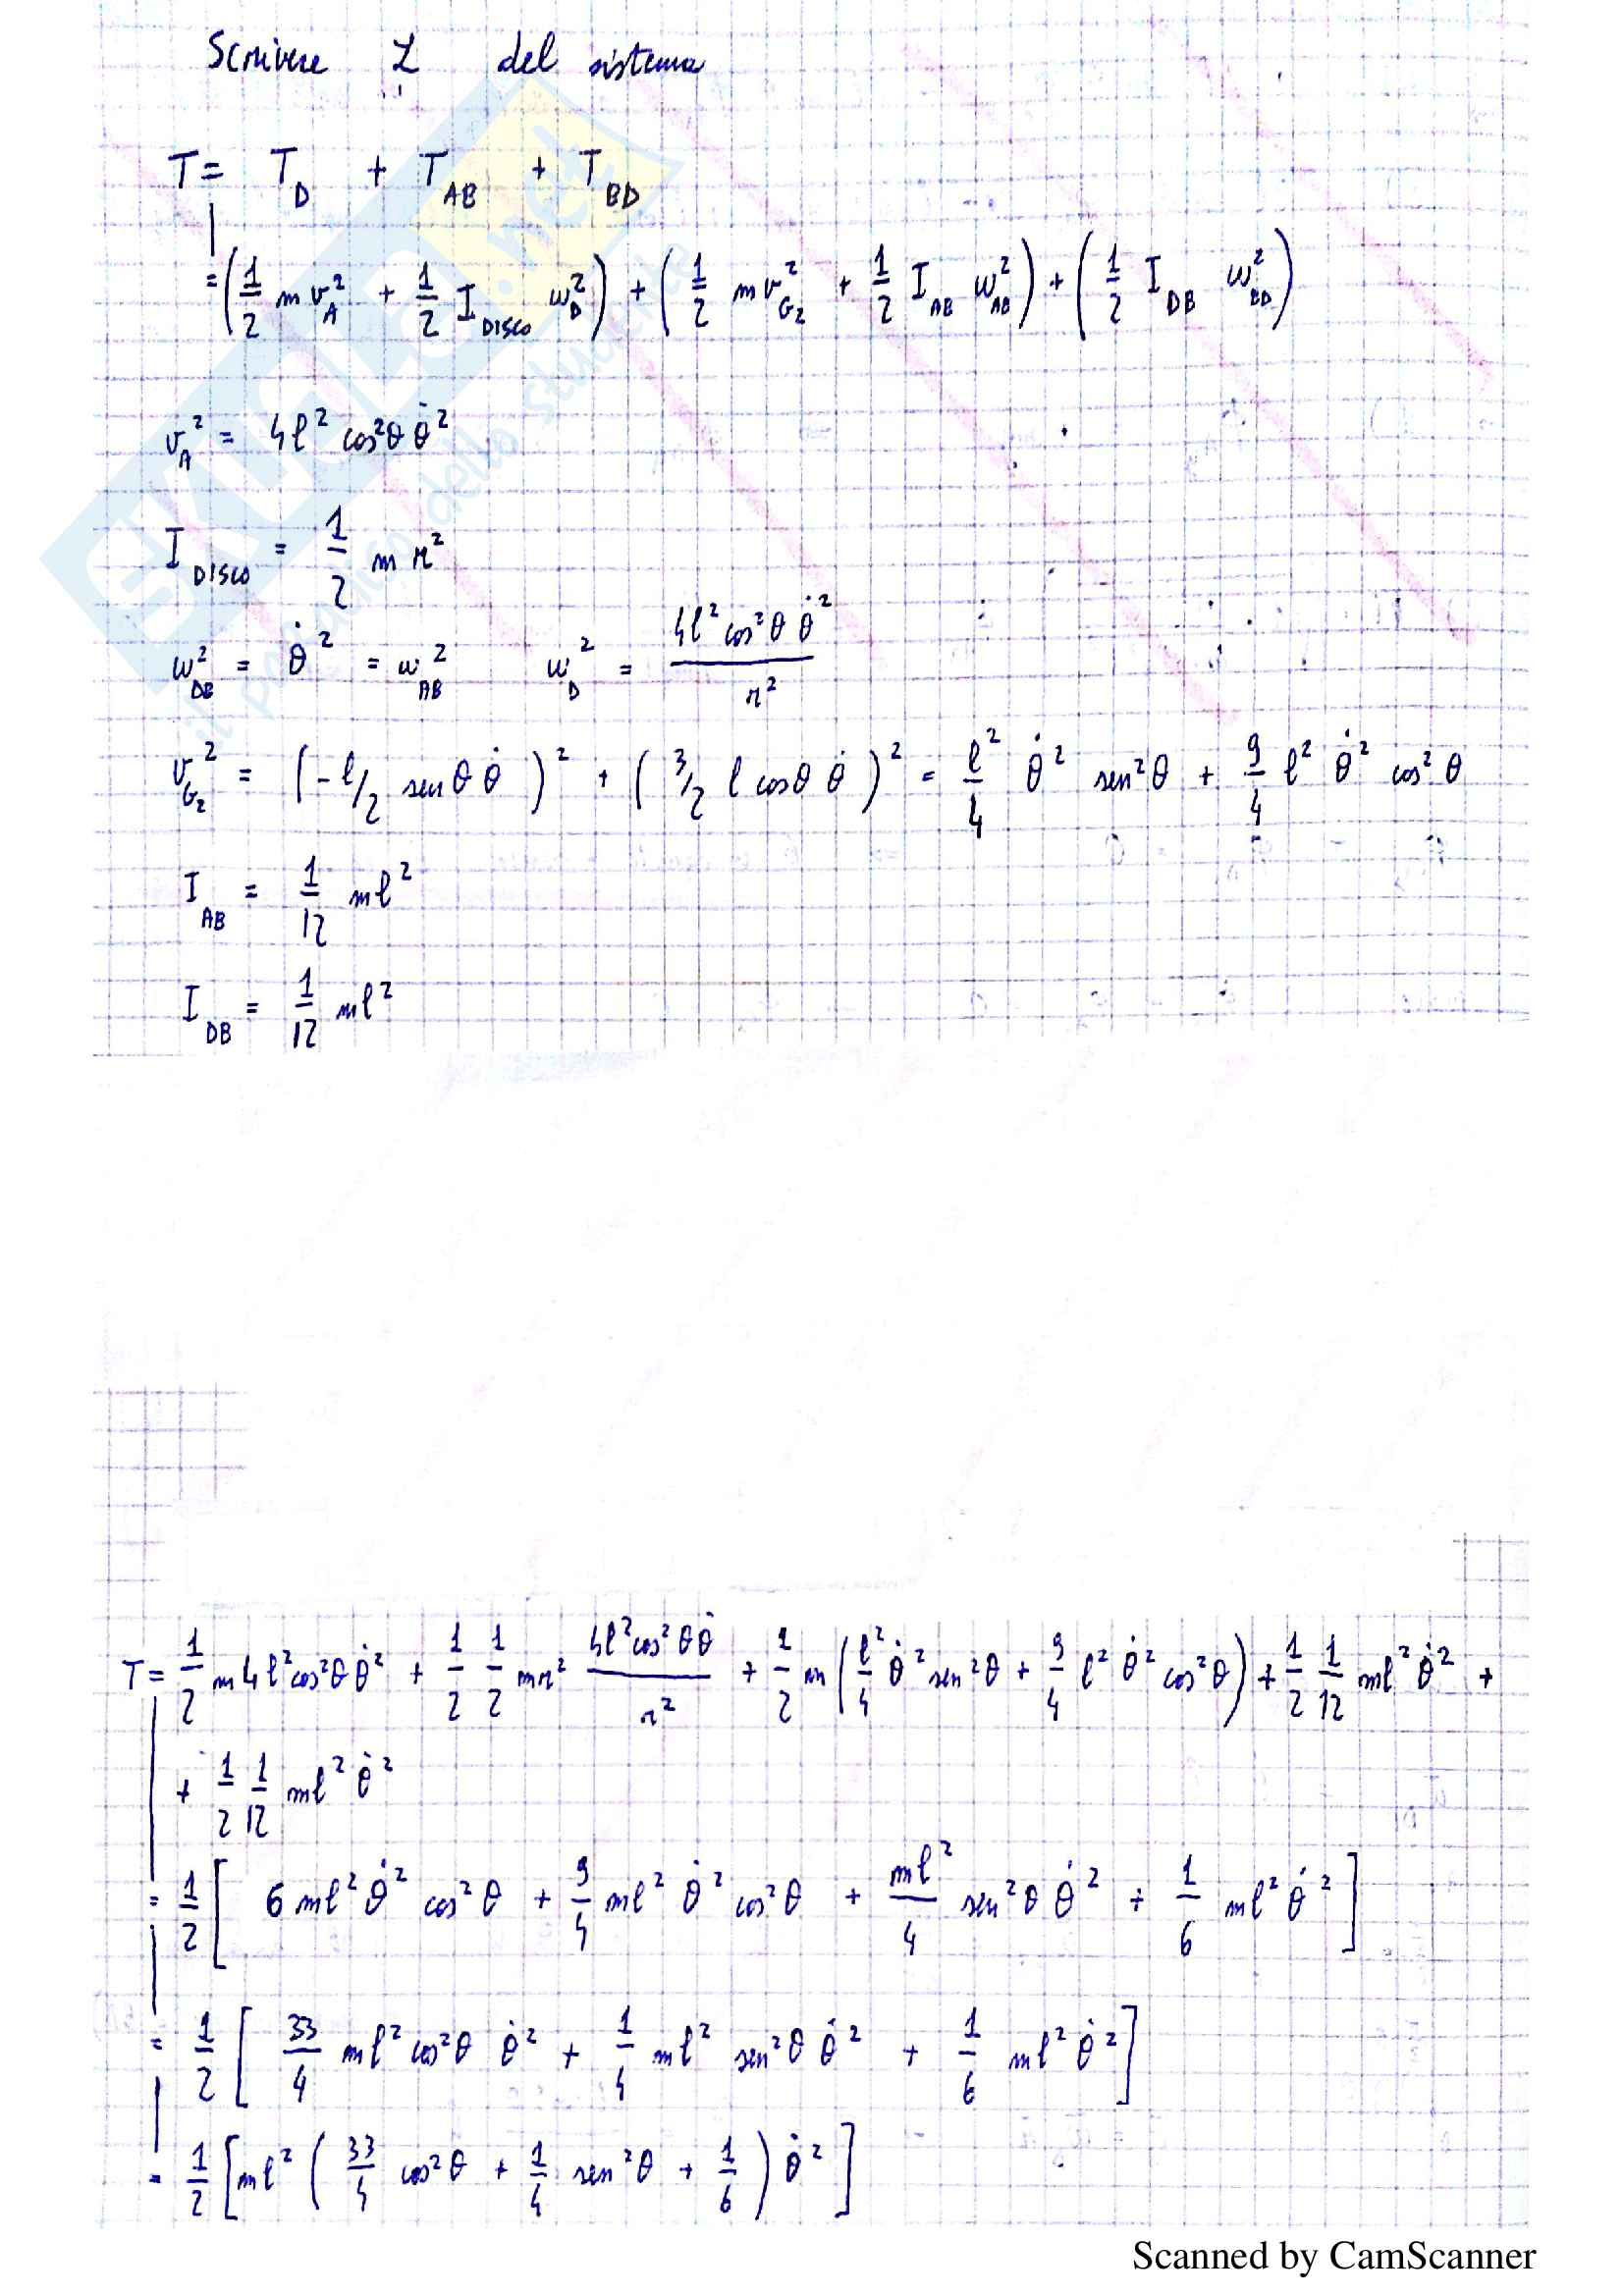 Scrivere L del sistema
T = T_D + T_AB + T_BD
= (1/2 m v_A² + 1/2 I_DISCO ω_D²) + (1/2 m v_G2² + 1/2 I_AB ω_AB²) + (1/2 I_DB ω_BD²)
v_A² = 4l² cos²θ θ̇²
I_DISCO = 1/2 m r²
ω_DB² = θ̇² = ω_AB² ω_D² = 4l² cos²θ θ̇² / r²
v_G2² = (-l/2 sen θ θ̇)² + (3/2 l cosθ θ̇)² = l²/4 θ̇² sen²θ + 9/4 l² θ̇² cos²θ
I_AB = 1/12 ml²
I_DB = 1/12 ml²
T = 1/2 m4l²cos²θ θ̇² + 1/2 1/2 mr² 4l²cos²θ θ̇ / r² + 1/2 m (l²/4 θ̇² sen²θ + 9/4 l² θ̇² cos²θ) + 1/2 1/12 ml² θ̇² +
+ 1/2 1/12 ml² θ̇²
= 1/2 [6 ml² θ̇² cos²θ + 9/4 ml² θ̇² cos²θ + ml²/4 sen²θ θ̇² + 1/6 ml² θ̇²]
= 1/2 [33/4 ml² cos²θ θ̇² + 1/4 ml² sen²θ θ̇² + 1/6 ml² θ̇²]
= 1/2 [ml² (33/4 cos²θ + 1/4 sen²θ + 1/6) θ̇²]
Scanned by CamScanner
SKUOLA.net